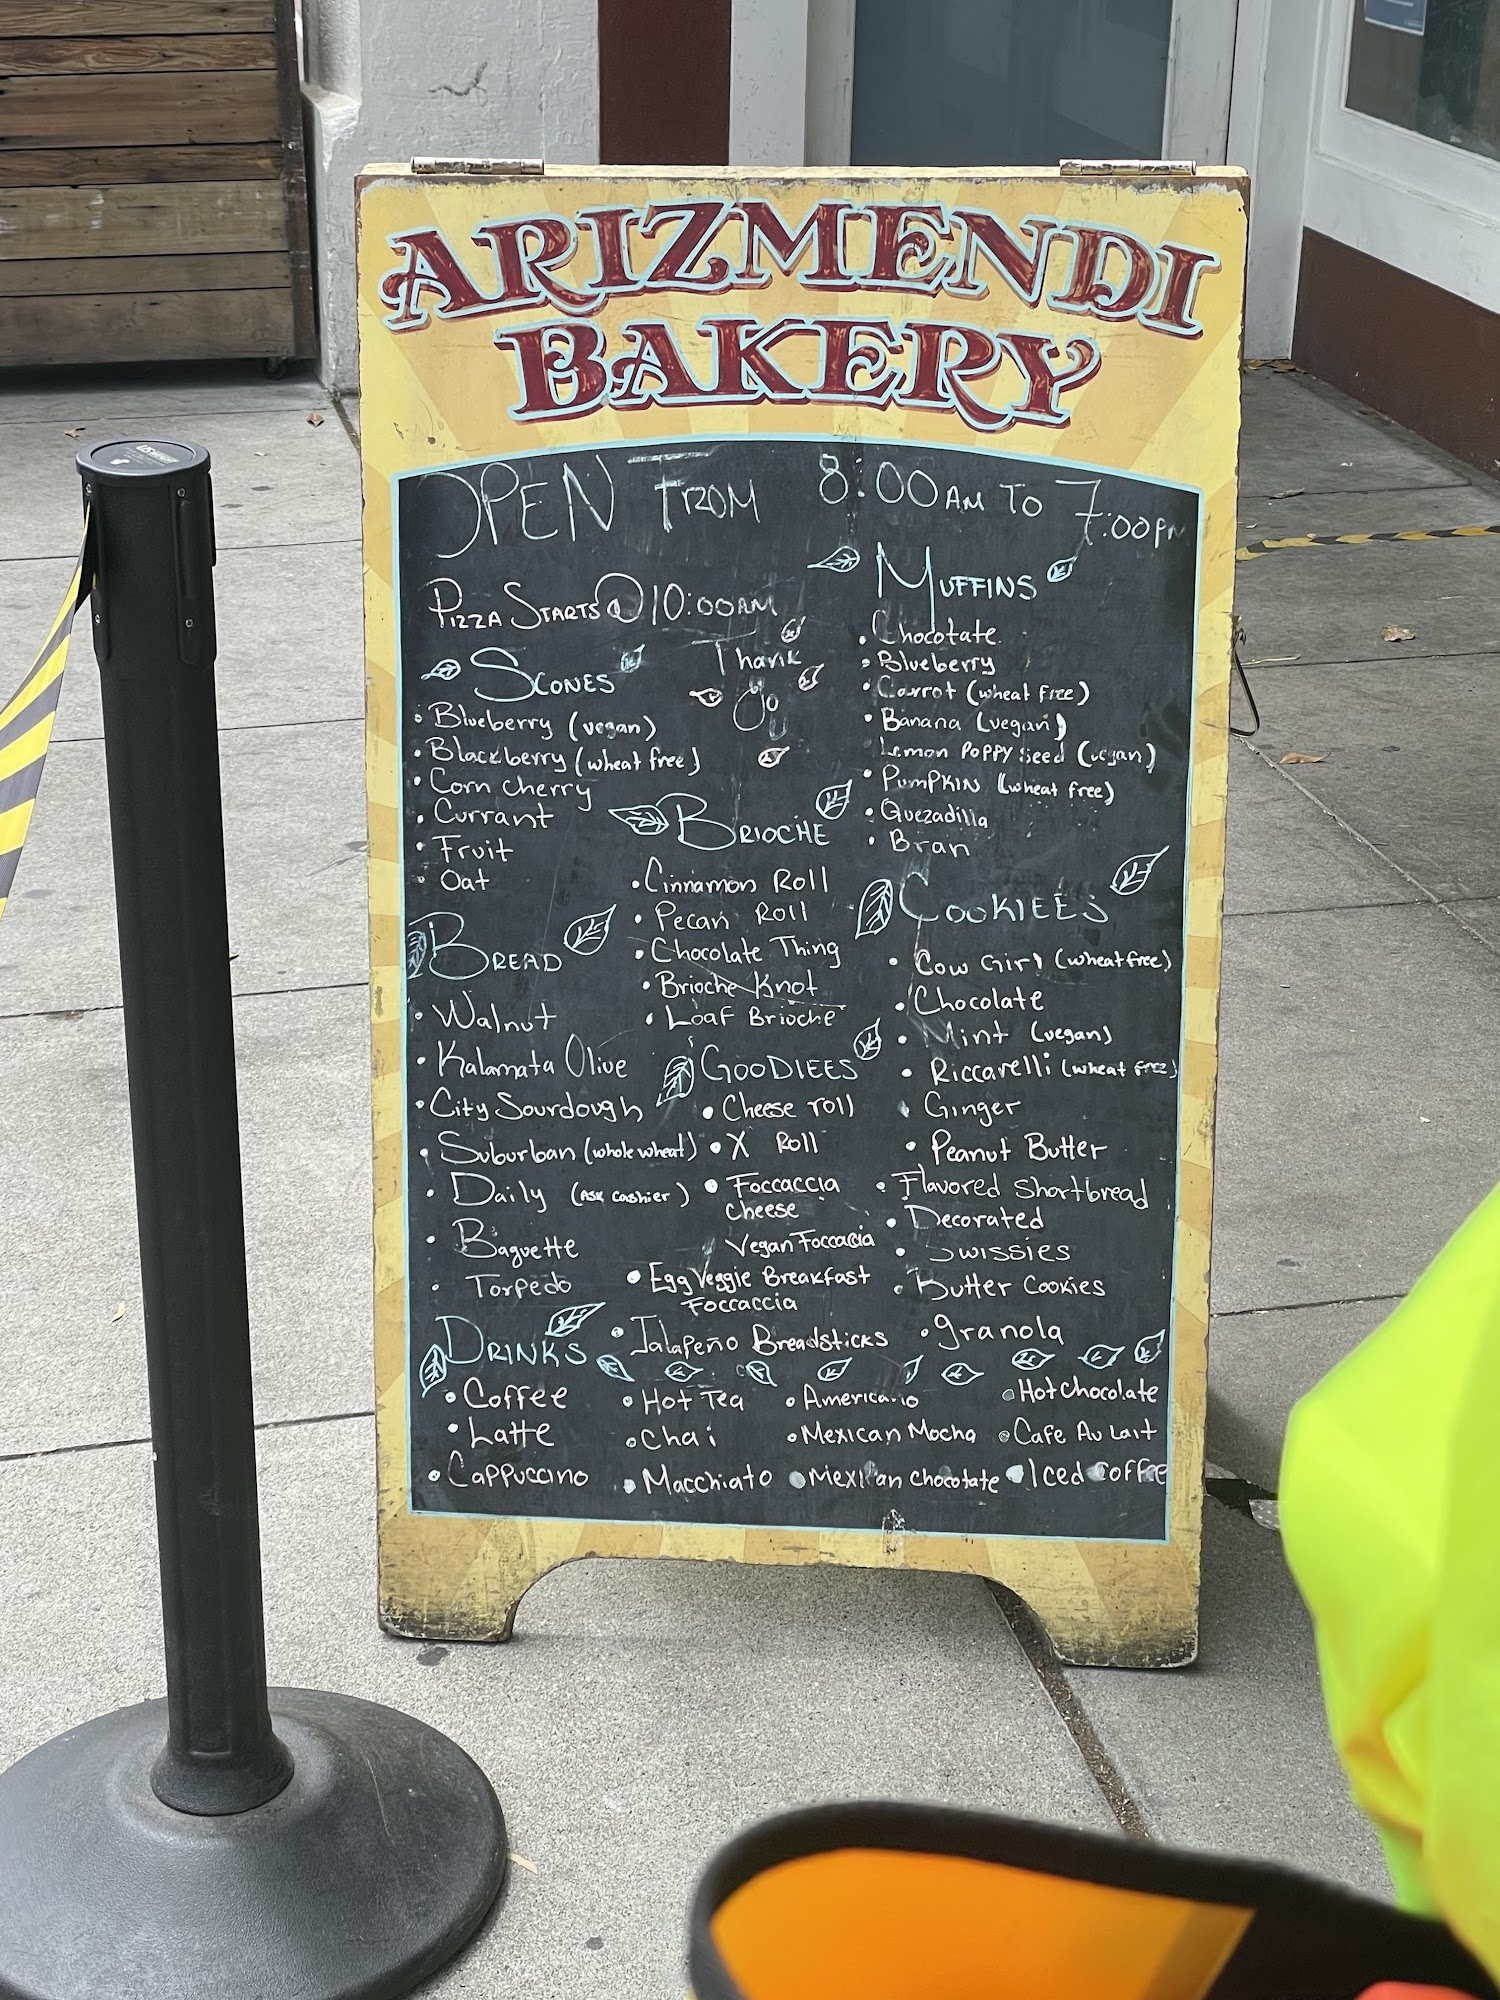 ARIZMENDI
BAKERY
OPEN FROM 8:00AM TO 7:00PM
PIZZA STARTS @ 10:00AM
Thank
yo
SCONES
Blueberry (vegan)
Blackberry (wheat free)
Corn cherry
Currant
Fruit
Oat
BREAD
Walnut
Kalamata Olive
City Sourdough
Suburban (whole wheat)
Daily (ASK cashier)
Baguette
Torpedo
BRIOCHE
Cinnamon Roll
Pecan Roll
Chocolate Thing
Brioche Knot
Loaf Brioche
GOODIEES
Cheese roll
X Roll
Foccaccia
cheese
Vegan Foccaccia
Egg Veggie Breakfast
Foccaccia
Jalapeño Breadsticks
MUFFINS
Chocolate
Blueberry
Carrot (wheat free)
Banana (vegan)
Lemon POPPY seed (vegan)
PUMPKIN (wheat free)
Quezadilla
Bran
COOKIEES
Cow Girl (wheat free)
Chocolate
Mint (vegan)
Riccarelli (wheat free)
Ginger
Peanut Butter
Flavored shortbread
Decorated
Swissies
Butter Cookies
granola
DRINKS
Coffee
Latte
Cappuccino
Hot Tea
Chai
Macchiato
Americano
Mexican Mocha
Mexican chocolate
Hot chocolate
Cafe Au Lait
Iced coffee